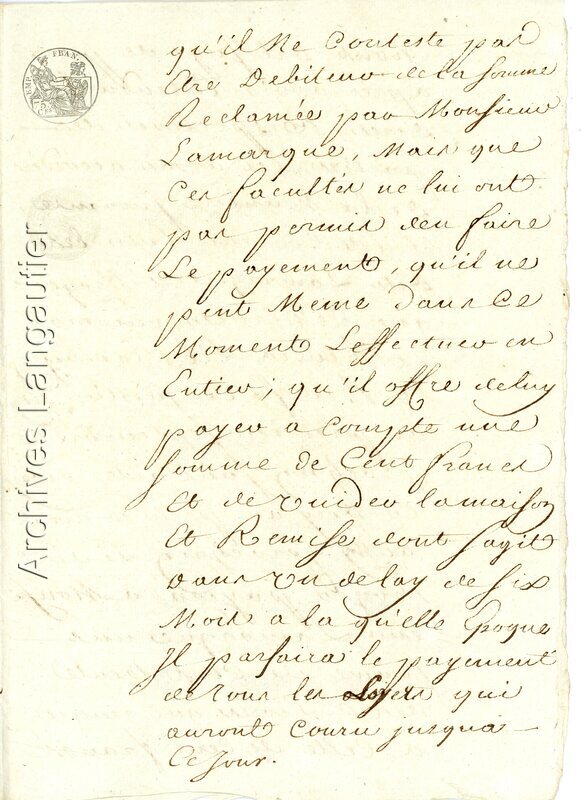 qu'il Ne Conteste pas
être Debiteur de la somme
Reclamée par Monsieur
Lamarque, Mais que
Ces facultés ne lui ont
pas permis d'en faire
Le payement, qu'il ne
peut Meme dans Ce
Moment L'effectuer en
Entier; qu'il offre de luy
payer a Compte une
somme de Cent francs
Et de vuider la maison
Et Remise dont s'agit
dans un delay de six
Mois a la qu'elle Epoque
Il parfaira le payement
de tous les Loyers qui
auront Couru jusqua
Ce Jour.
Archives Langautier